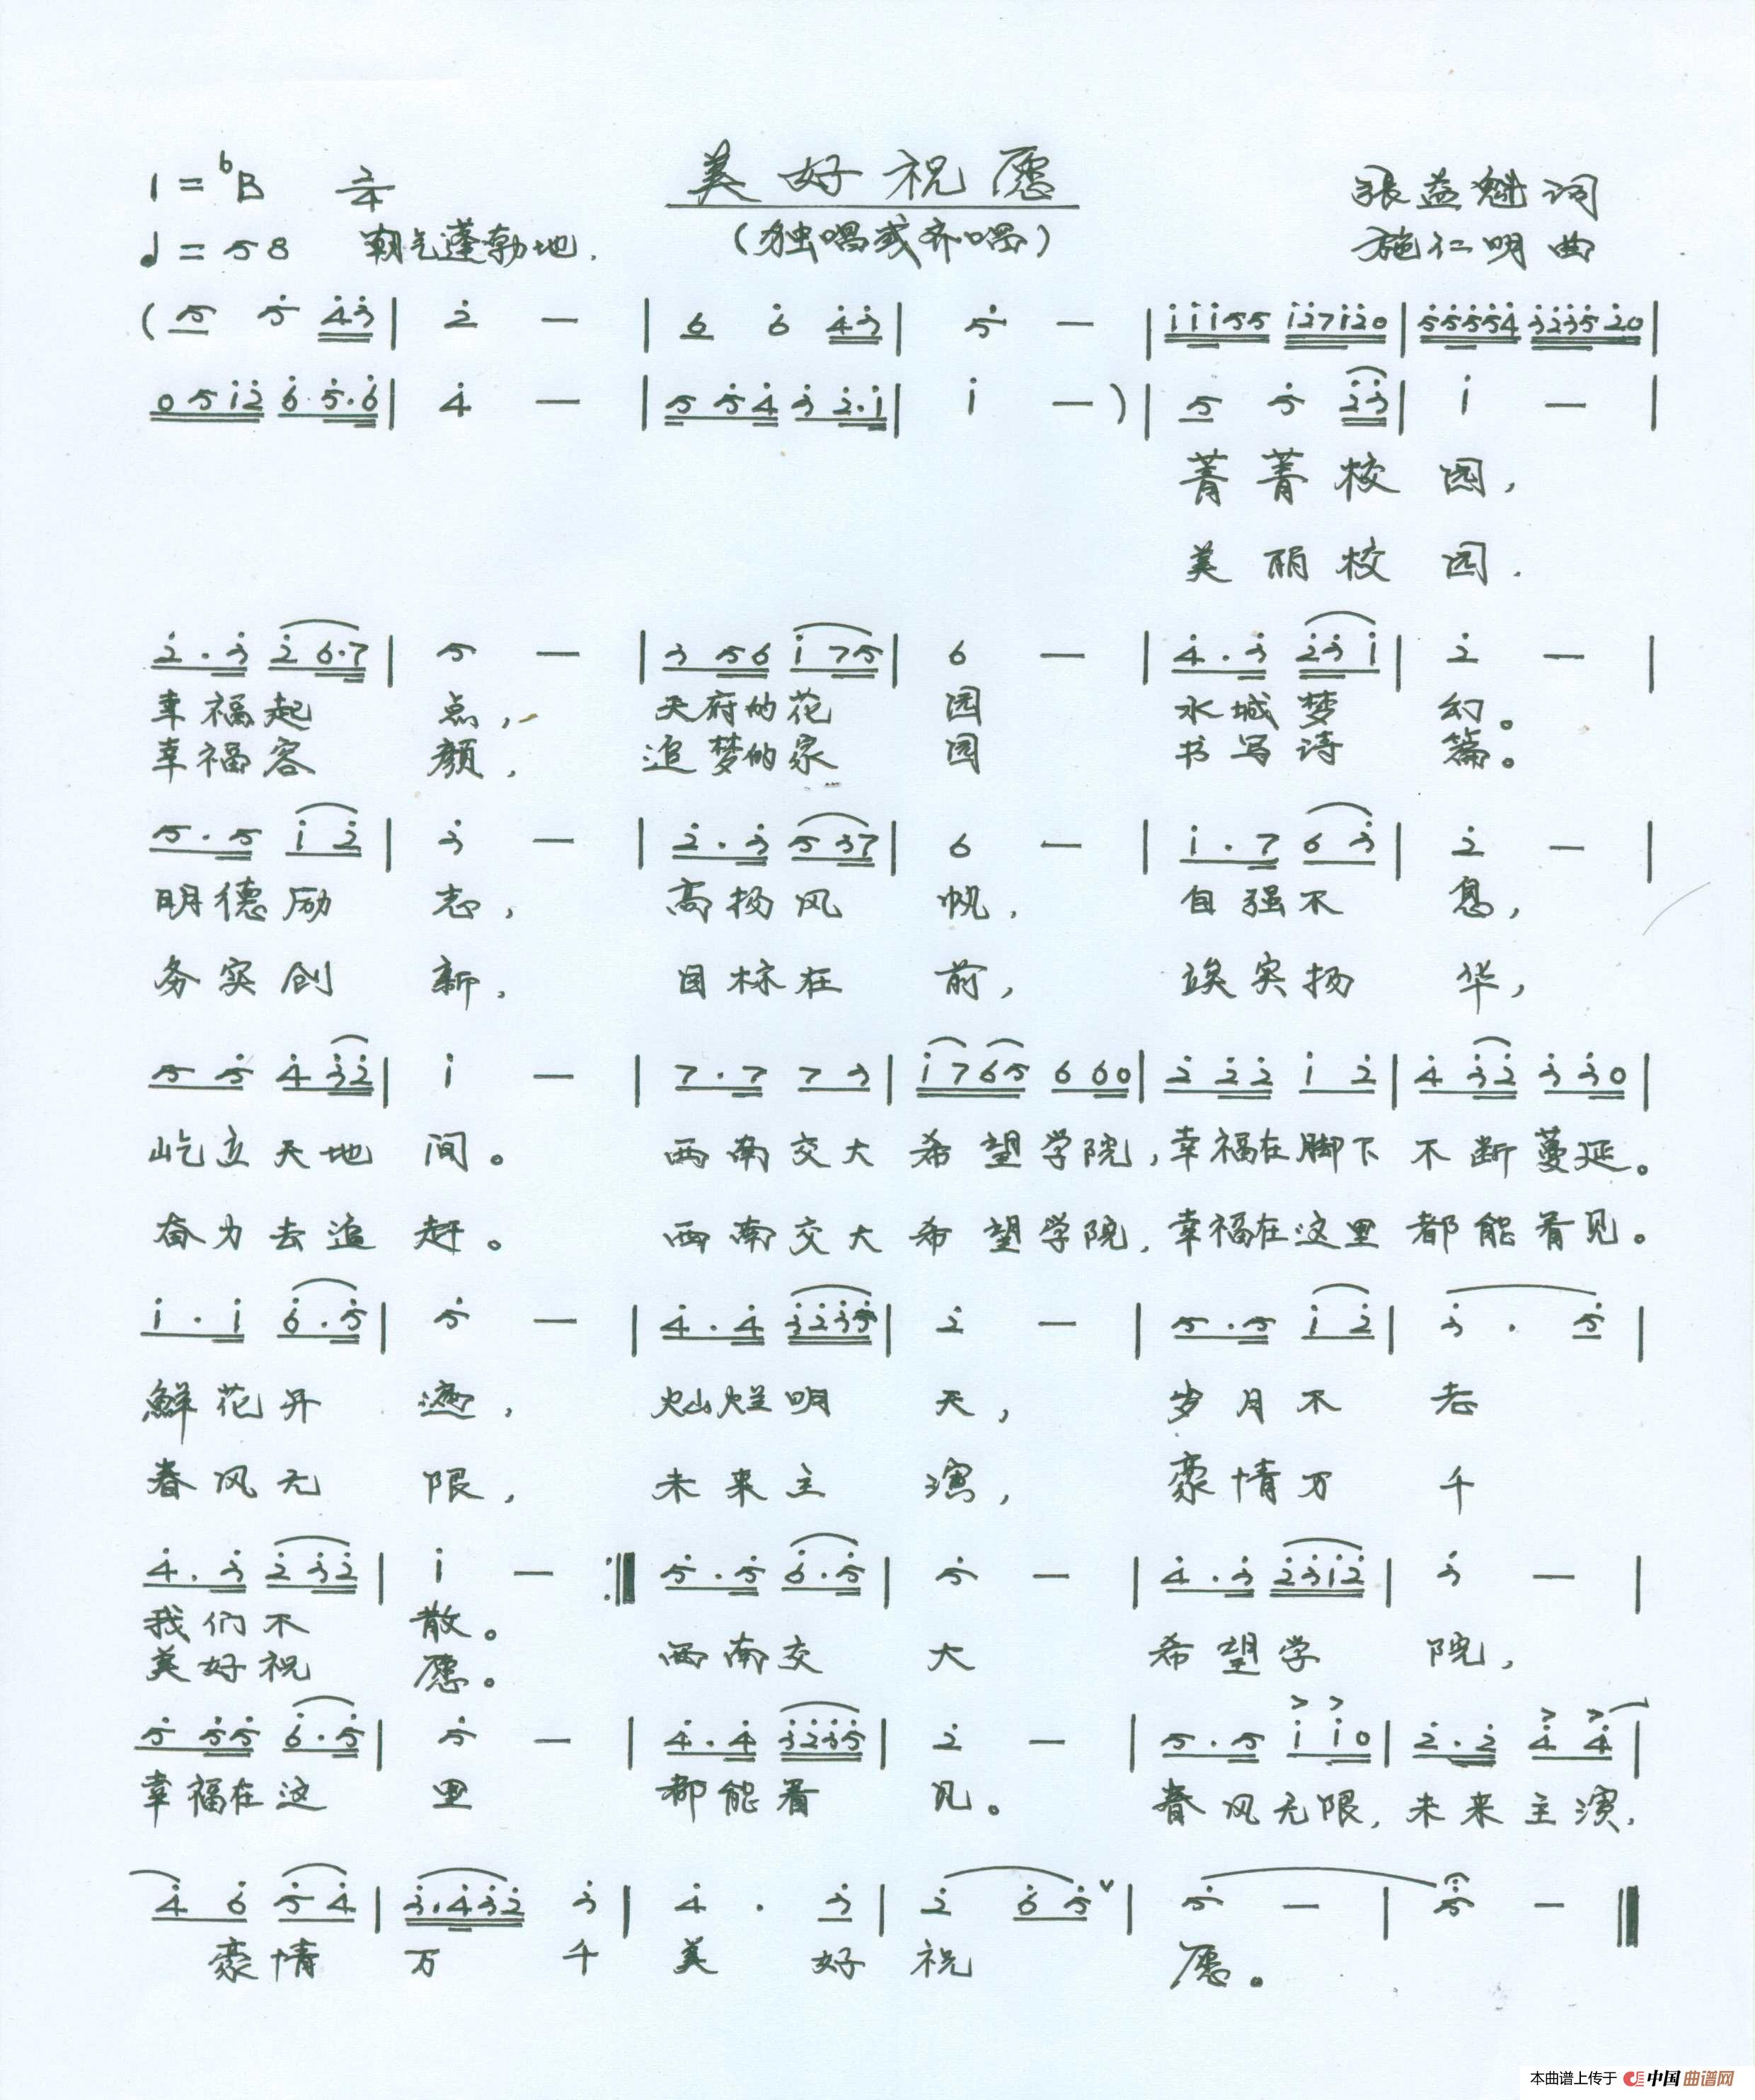 美好祝愿
1=♭B 2/4
张益魁 词
♩=58 朝气蓬勃地.
(独唱或齐唱)
施仁明 曲
菁菁校园,
美丽校园.
幸福起点, 天府的花园 水城梦幻。
幸福容颜, 追梦的家园 书写诗篇。
明德励志, 高扬风帆. 自强不息,
务实创新. 目标在前, 竢实扬华,
屹立天地间。 西南交大希望学院,幸福在脚下不断蔓延。
奋力去追赶。 西南交大希望学院,幸福在这里都能看见。
鲜花开遍, 灿烂明天, 岁月不老
春风无限, 未来主演, 豪情万千
我们不散。
美好祝愿。 西南交大 希望学院,
幸福在这里 都能看见。 春风无限,未来主演,
豪情万千美好祝愿。
本曲谱上传于 中国曲谱网